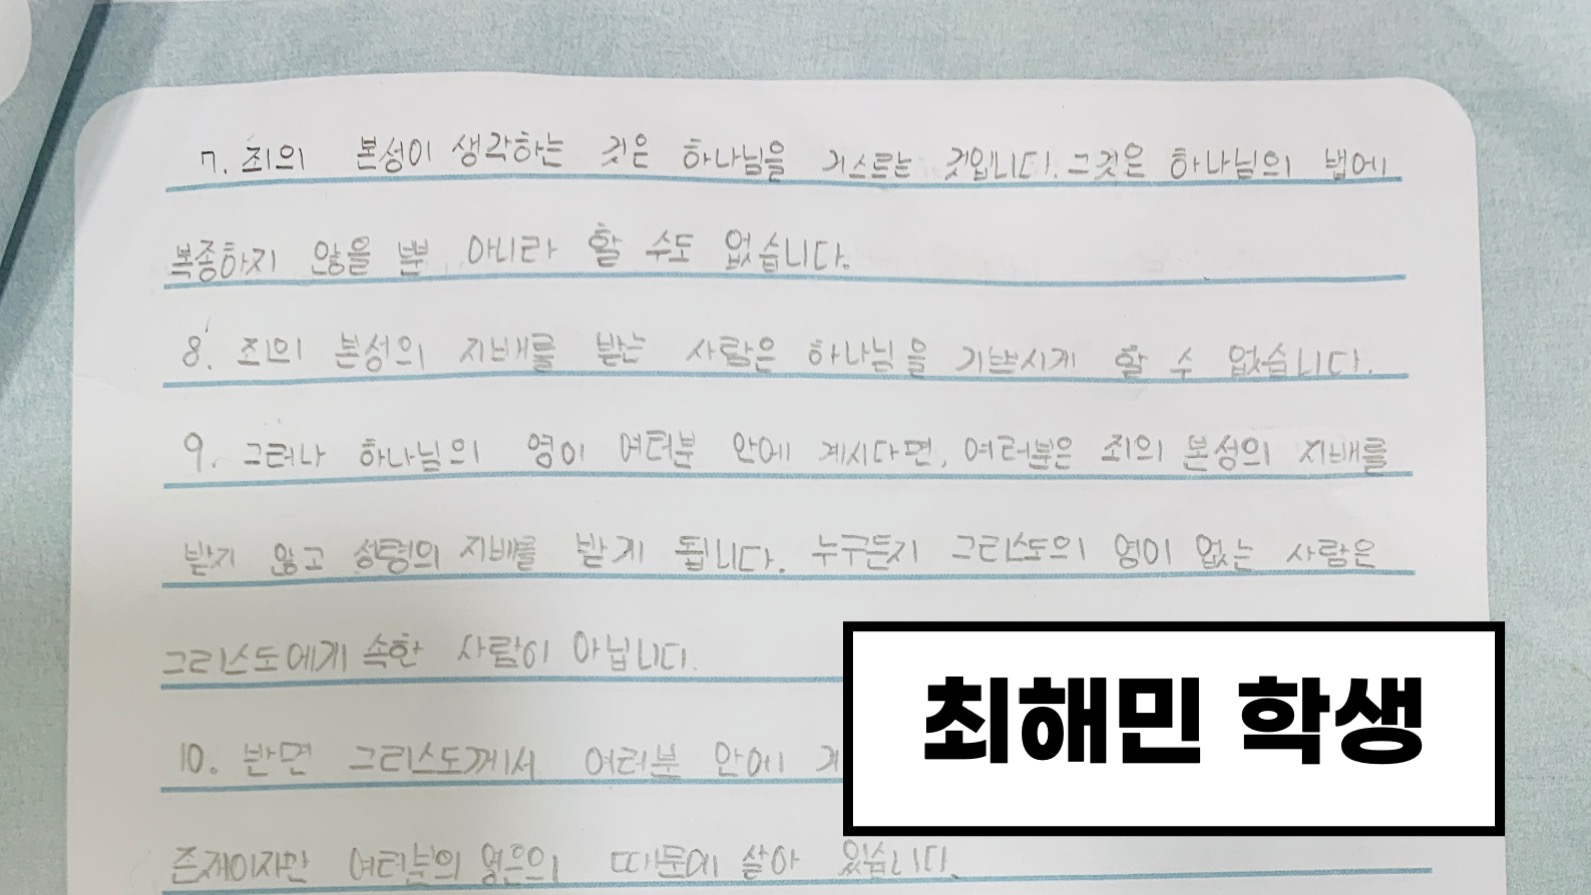 7. 죄의 본성이 생각하는 것은 하나님을 거스르는 것입니다. 그것은 하나님의 법에
복종하지 않을 뿐 아니라 할 수도 없습니다.
8. 죄의 본성의 지배를 받는 사람은 하나님을 기쁘시게 할 수 없습니다.
9. 그러나 하나님의 영이 여러분 안에 계시다면, 여러분은 죄의 본성의 지배를
받지 않고 성령의 지배를 받게 됩니다. 누구든지 그리스도의 영이 없는 사람은
그리스도에게 속한 사람이 아닙니다.
10. 반면 그리스도께서 여러분 안에 계
존재이지만 여러분의 영은 의 때문에 살아 있습니다.
최해민 학생